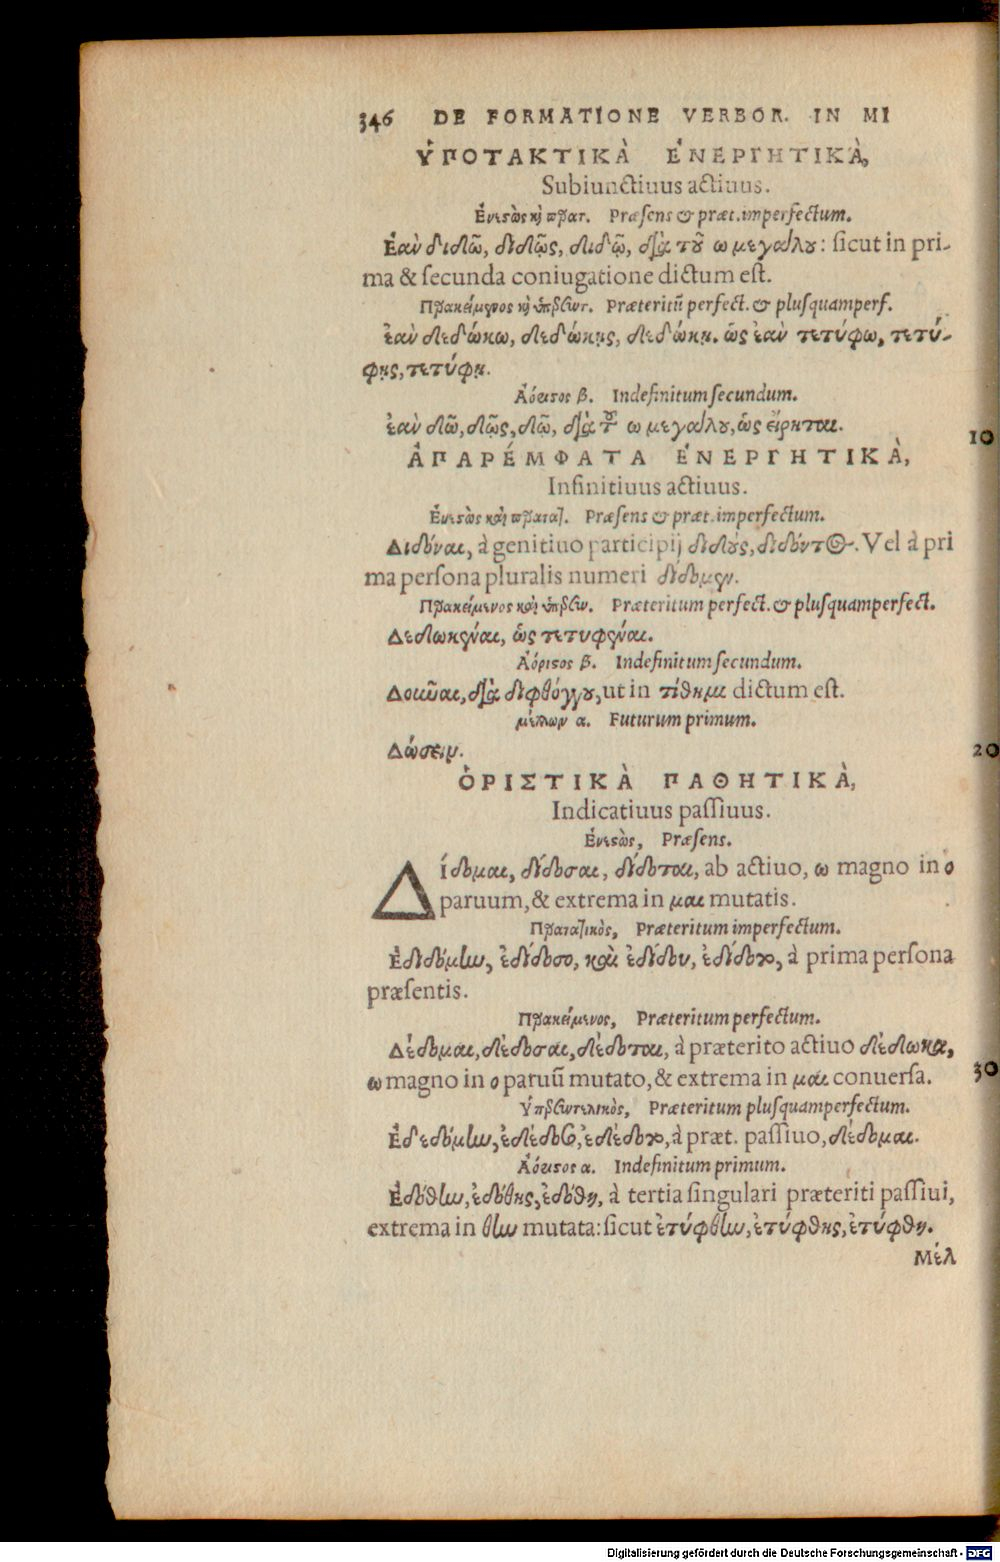 346 DE FORMATIONE VERBOR. IN MI
ὙΠΟΤΑΚΤΙΚᾺ ἘΝΕΡΓΗΤΙΚᾺ,
Subiunctiuus actiuus.
Ἐνεςὼς κὶ πρατ. Præsens & præt. imperfectum.
Ἐὰν διδῶ, διδῷς, διδῷ, διὰ τοῦ ω μεγάλου: sicut in pri-
ma & secunda coniugatione dictum est.
Πρακείμενος κὶ ὑπερσωτ. Præteritū perfect. & plusquamperf.
ἐὰν δεδώκω, δεδώκῃς, δεδώκῃ. ὡς ἐὰν τετύφω, τετύ-
φῃς, τετύφῃ.
Ἀόριςος β. Indefinitum secundum.
ἐὰν δῶ, δῷς, δῷ, διὰ τοῦ ω μεγάλου, ὡς εἴρηται.
10
ἈΠΑΡΈΜΦΑΤΑ ἘΝΕΡΓΗΤΙΚᾺ,
Infinitiuus actiuus.
Ἐνεςὼς καὶ πραταζ. Præsens & præt. imperfectum.
Διδόναι, à genitiuo participij διδούς, διδόντος. Vel à pri
ma persona pluralis numeri δίδομεν.
Πρακείμενος καὶ ὑπερσω. Præteritum perfect. & plusquamperfect.
Δεδωκέναι, ὡς τετυφέναι.
Ἀόριςος β. Indefinitum secundum.
Δοῦναι, διὰ διφθόγγου, ut in τίθημι dictum est.
μέλλων α. Futurum primum.
20
Δώσειν.
ὉΡΙΣΤΙΚᾺ ΠΑΘΗΤΙΚᾺ,
Indicatiuus passiuus.
Ἐνεςὼς, Præsens.
Δίδομαι, δίδοσαι, δίδοται, ab actiuo, ω magno in ο
paruum, & extrema in μαι mutatis.
Πραταζικὸς, Præteritum imperfectum.
Ἐδιδόμην, ἐδίδοσο, καὶ ἐδίδου, ἐδίδοτο, à prima persona
præsentis.
Πρακείμενος, Præteritum perfectum.
Δέδομαι, δέδοσαι, δέδοται, à præterito actiuo δέδωκα,
30
ω magno in ο paruū mutato, & extrema in μαι conuersa.
Ὑπερσωτελικὸς, Præteritum plusquamperfectum.
Ἐδεδόμην, ἐδέδοσο, ἐδέδοτο, à præt. passiuo, δέδομαι.
Ἀόριςος α. Indefinitum primum.
Ἐδόθην, ἐδόθης, ἐδόθη, à tertia singulari præteriti passiui,
extrema in θην mutata: sicut ἐτύφθην, ἐτύφθης, ἐτύφθη.
Μέλ
Digitalisierung gefördert durch die Deutsche Forschungsgemeinschaft - DFG